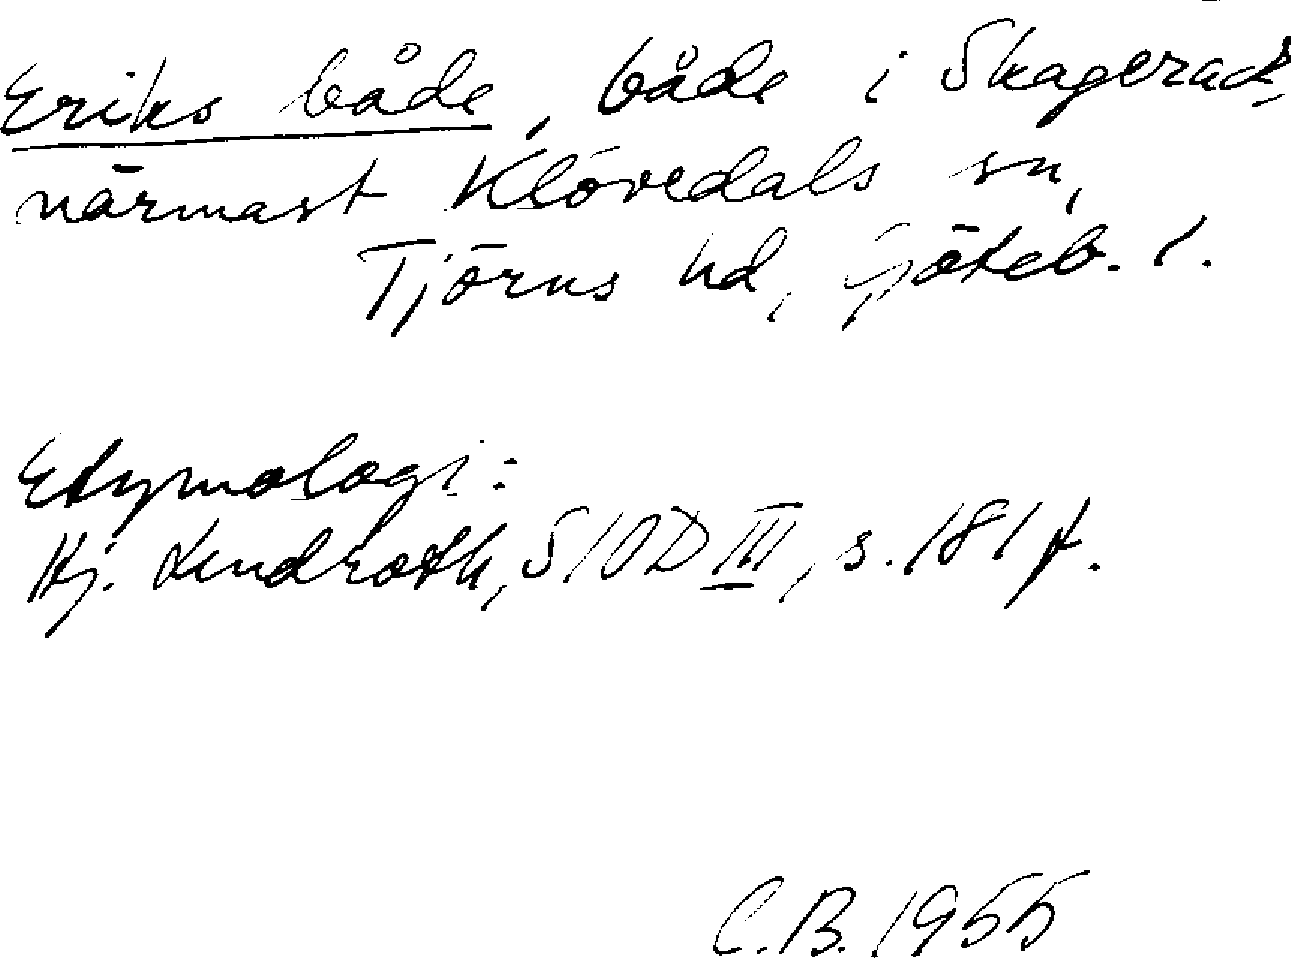 Eriks både, både i Skagerack,
närmast Klövedals sn,
Tjörns hd, Göteb. l.
Etymologi:
Hj. Lindroth, SIOD III, s. 181 f.
C.B. 1955